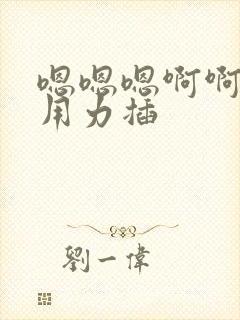 嗯嗯嗯啊啊
用力插
劉一偉